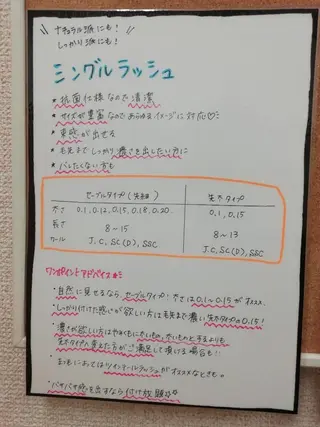 ナチュラル派にも!
しっかり派にも!
シングルラッシュ
* 抗菌仕様なので清潔
* サイズが豊富なのであらゆるイメージに対応♡
* 束感が出せる
* 毛先までしっかり濃さを出したい方に
* バレたくない方も
セーブルタイプ(先細) 先太タイプ
太さ 0.1, 0.12, 0.15, 0.18, 0.20 0.1, 0.15
長さ 8~15 8~13
カール J.C.SC(D).SSC J.C.SC(D).SSC
ワンポイントアドバイス
・自然に見せるなら、セーブルタイプ!太さは0.1~0.15がオススメ
・しっかり付けた感じが欲しい方は毛先まで濃い先太タイプの0.15!
・濃さが欲しい方はやみくもに
先太タイプへ変えた方がご満足して頂ける場合も!!
ツインテールラッシュがオススメなときも。
・バサバサ感を出すなら付け放題